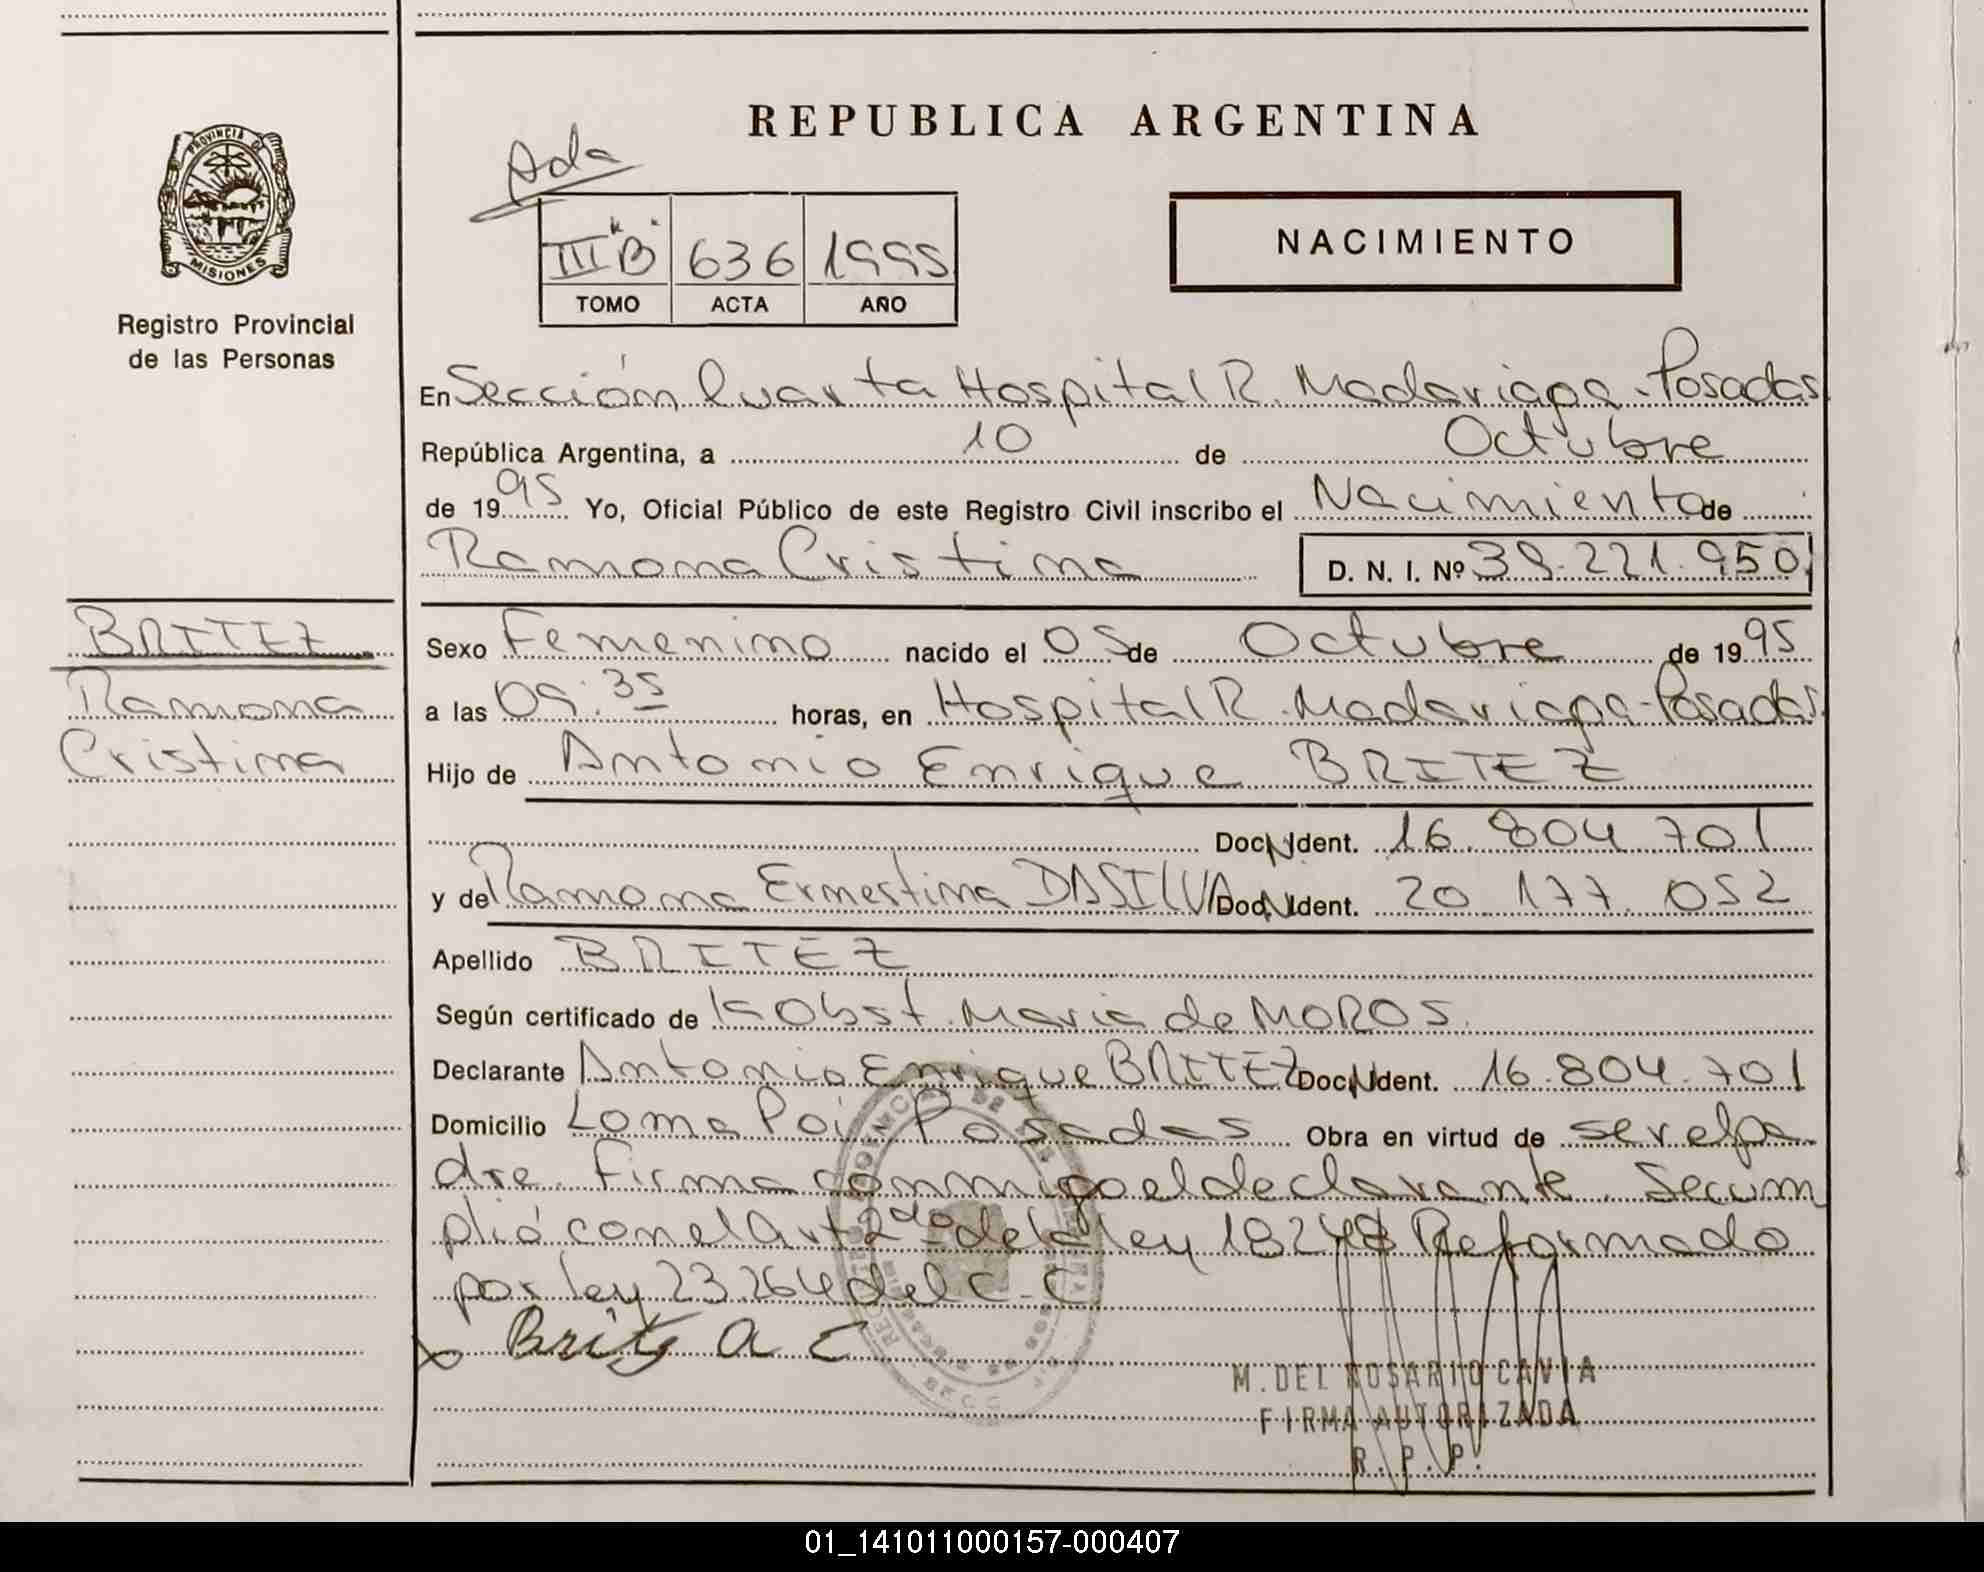 PROVINCIA DE
MISIONES
Registro Provincial
de las Personas
BRITEZ
Ramona
Cristina
REPUBLICA ARGENTINA
Ada
III "B" 636 1995
TOMO ACTA AÑO
NACIMIENTO
En Sección Cuarta Hospital R. Madariaga - Posadas
República Argentina, a 10 de Octubre
de 1995 Yo, Oficial Público de este Registro Civil inscribo el Nacimiento de
Ramona Cristina D. N. I. Nº 39.221.950
Sexo Femenino nacido el 05 de Octubre de 1995
a las 09:35 horas, en Hospital R. Madariaga - Posadas
Hijo de Antonio Enrique BRITEZ
Doc. N Ident. 16.804.701
y de Ramona Ernestina DASILVA Doc. N Ident. 20.177.052
Apellido BRITEZ
Según certificado de la Obst. Maria de MOROS.
Declarante Antonio Enrique BRITEZ Doc. N Ident. 16.804.701
Domicilio Loma Poi Posadas Obra en virtud de ser el pa
dre. Firma conmigo el declarante. Se cum
plió con el Art 2do de la ley 18248 Reformado
por ley 23.264 del C.C
Britez A E
M. DEL ROSARIO CAVIA
FIRMA AUTORIZADA
R. P. P.
01_141011000157-000407